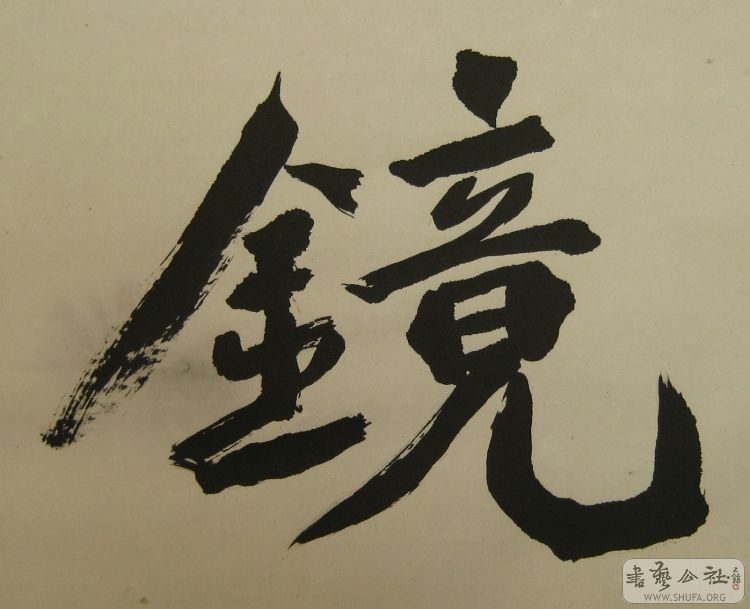 鏡
書藝公社
WWW.SHUFA.ORG